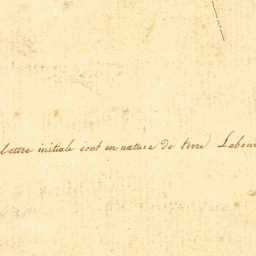 lettre initiale sont en nature de terre Labour